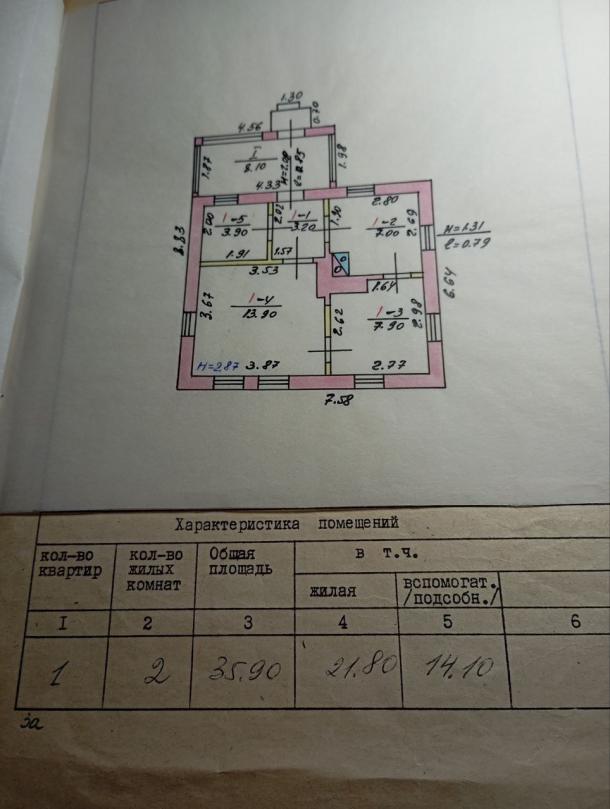 1.30
0.70
4.56
1.87
I
8.10
H=2.08
l=0.85
1.98
4.33
2.80
2.00
1-5
3.90
2.02
1-1
3.20
1.90
1-2
7.00
2.69
H=1.31
l=0.79
8.83
1.91
1.57
3.53
1.64
6.64
3.67
1-4
13.90
2.62
1-3
7.90
2.98
H=2.87
3.87
2.77
7.58
Характеристика помещений
кол-во квартир
кол-во жилых комнат
Общая площадь
в т.ч.
жилая
вспомогат. /подсобн./
I 2 3 4 5 6
1 2 35.90 21.80 14.10
за